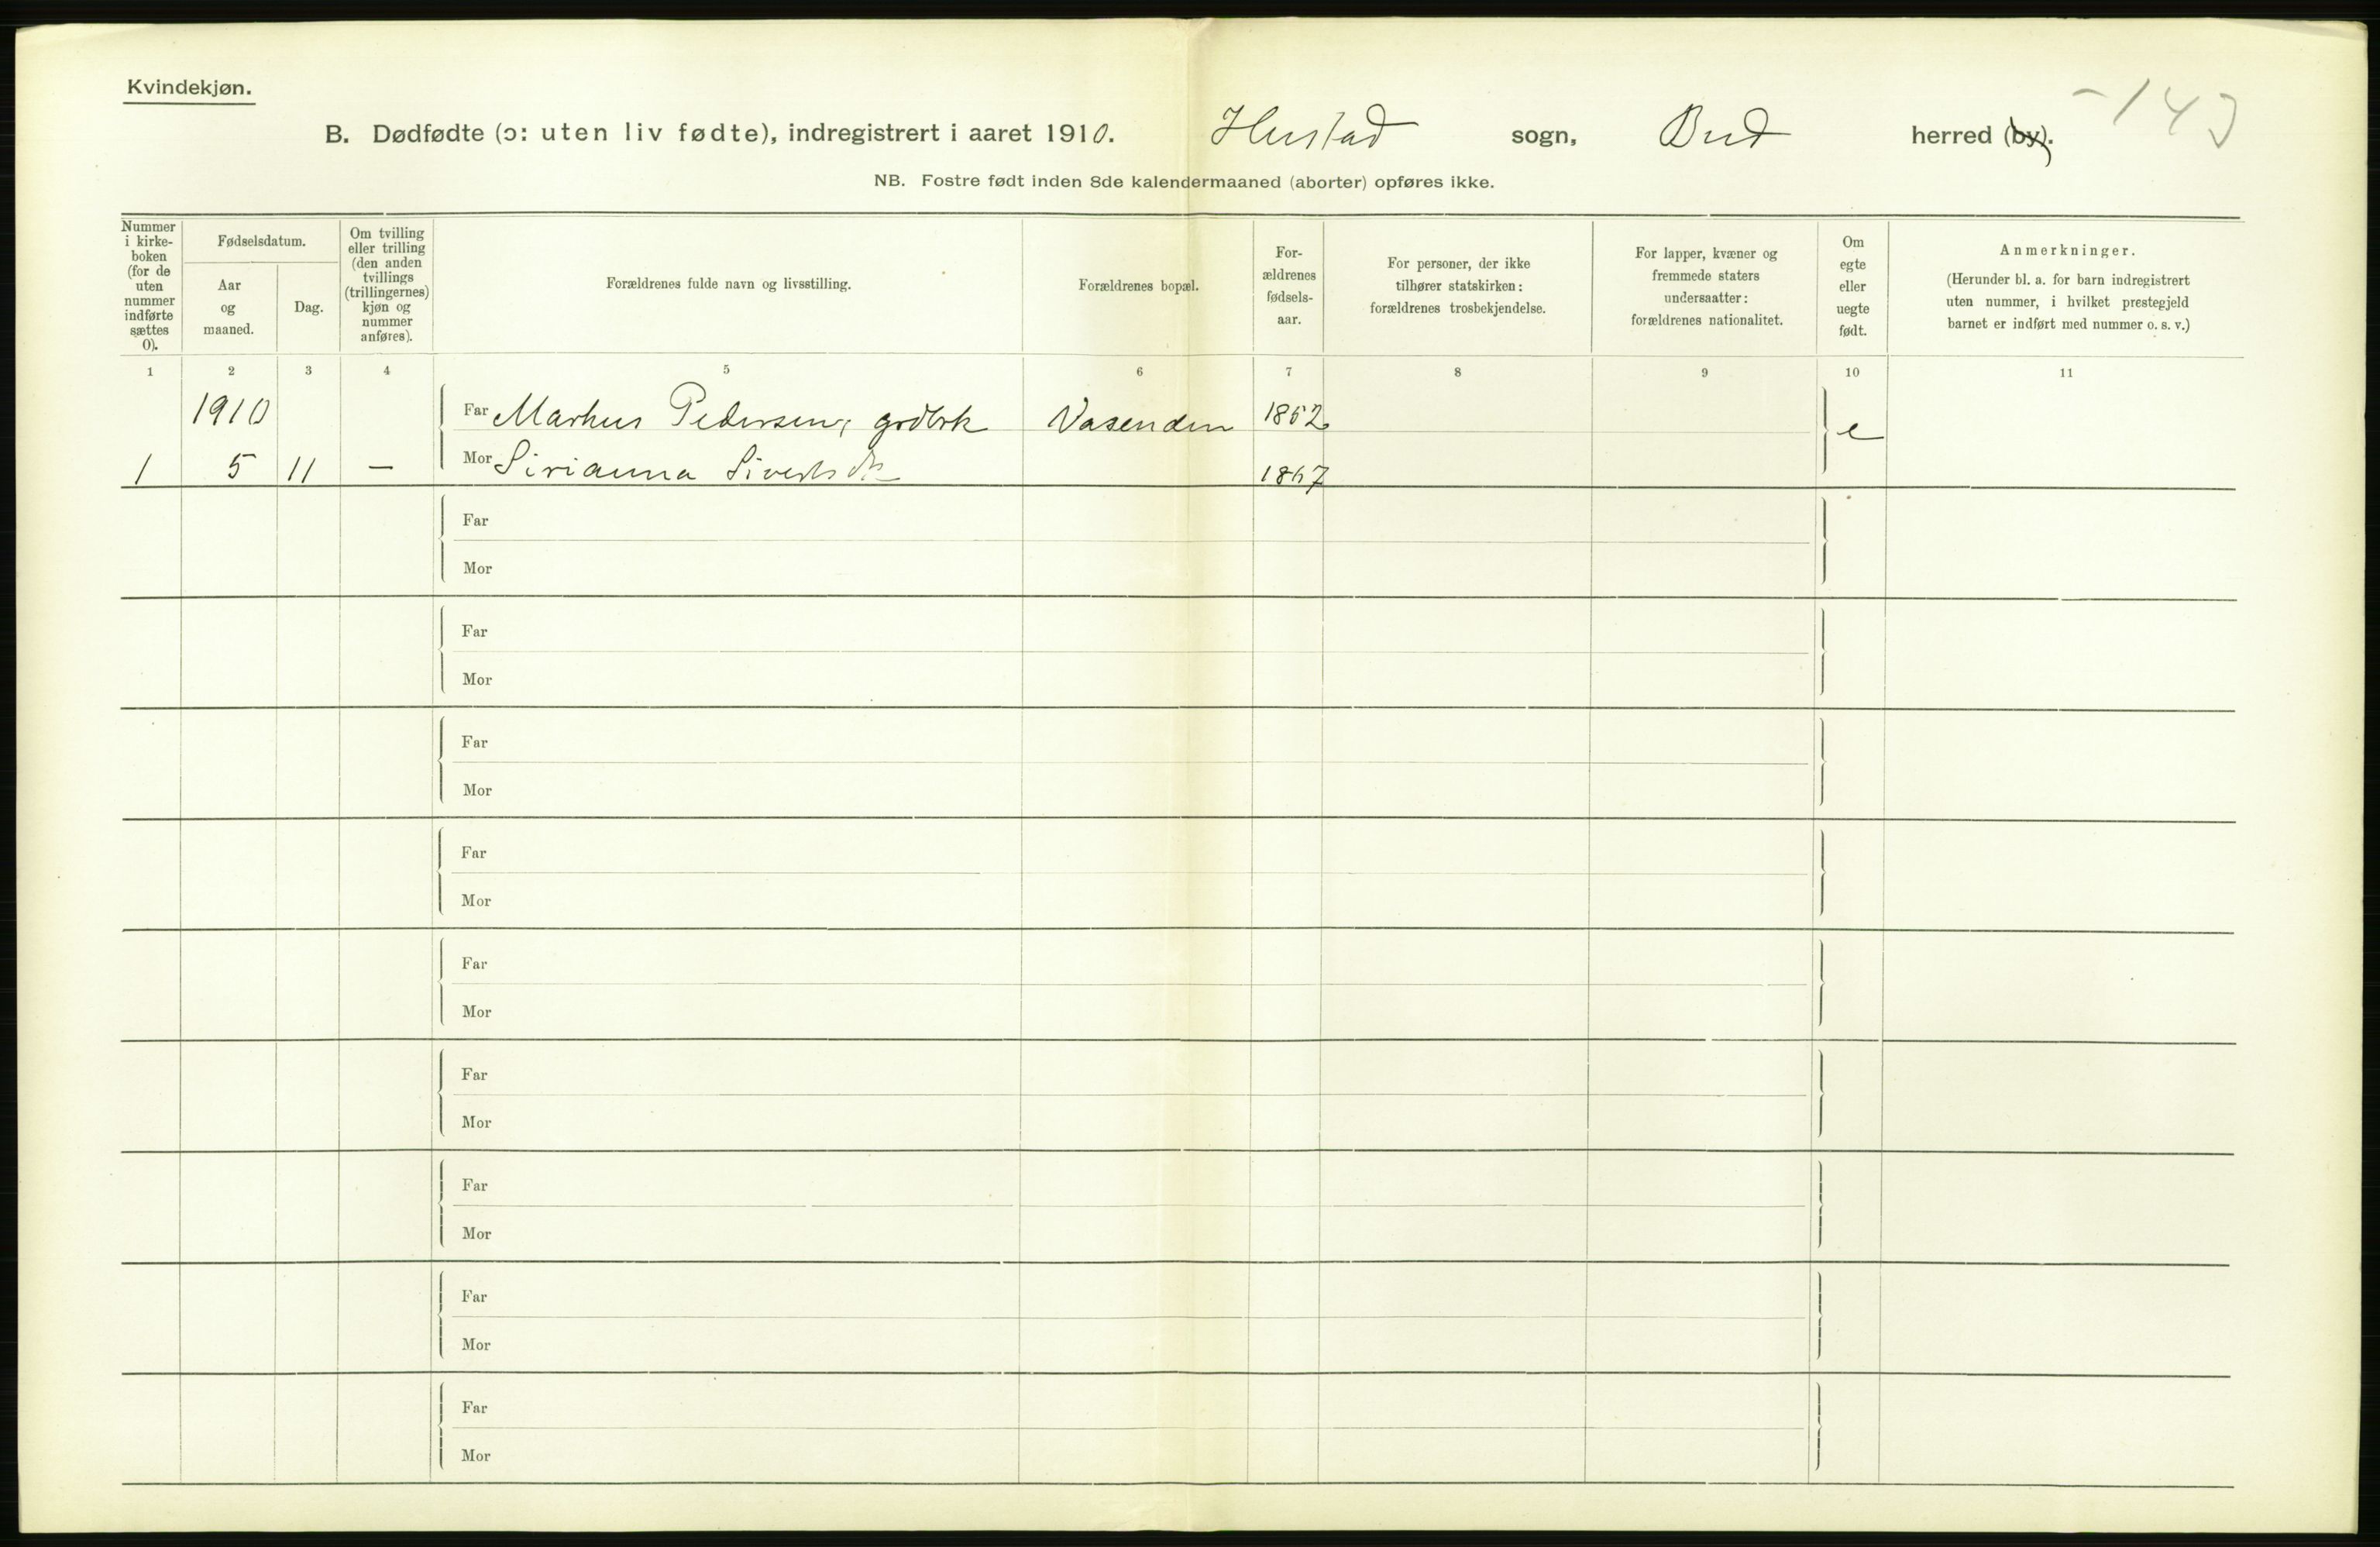 Kvindekjøn.
B. Dødfødte (ɔ: uten liv fødte), indregistrert i aaret 1910. Hustad sogn, Bud herred (by).
NB. Fostre født inden 8de kalendermaaned (aborter) opføres ikke.
Nummer
i kirke-
boken
(for de
uten
nummer
indførte
sættes
0).
Fødselsdatum.
Aar
og
maaned.
Dag.
Om tvilling
eller trilling
(den anden
tvillings
(trillingernes)
kjøn og
nummer
anføres).
Forældrenes fulde navn og livsstilling.
Forældrenes bopæl.
For-
ældrenes
fødsels-
aar.
For personer, der ikke
tilhører statskirken:
forældrenes trosbekjendelse.
For lapper, kvæner og
fremmede staters
undersaatter:
forældrenes nationalitet.
Om
egte
eller
uegte
født.
Anmerkninger.
(Herunder bl. a. for barn indregistrert
uten nummer, i hvilket prestegjeld
barnet er indført med nummer o. s. v.)
1 2 3 4 5 6 7 8 9 10 11
1910 Far Markus Pedersen, grdbrk Vasenden 1862 e
1 5 11 — Mor Sirianna Sivertsdtr 1867
Far
Mor
Far
Mor
Far
Mor
Far
Mor
Far
Mor
Far
Mor
Far
Mor
Far
Mor
Far
Mor